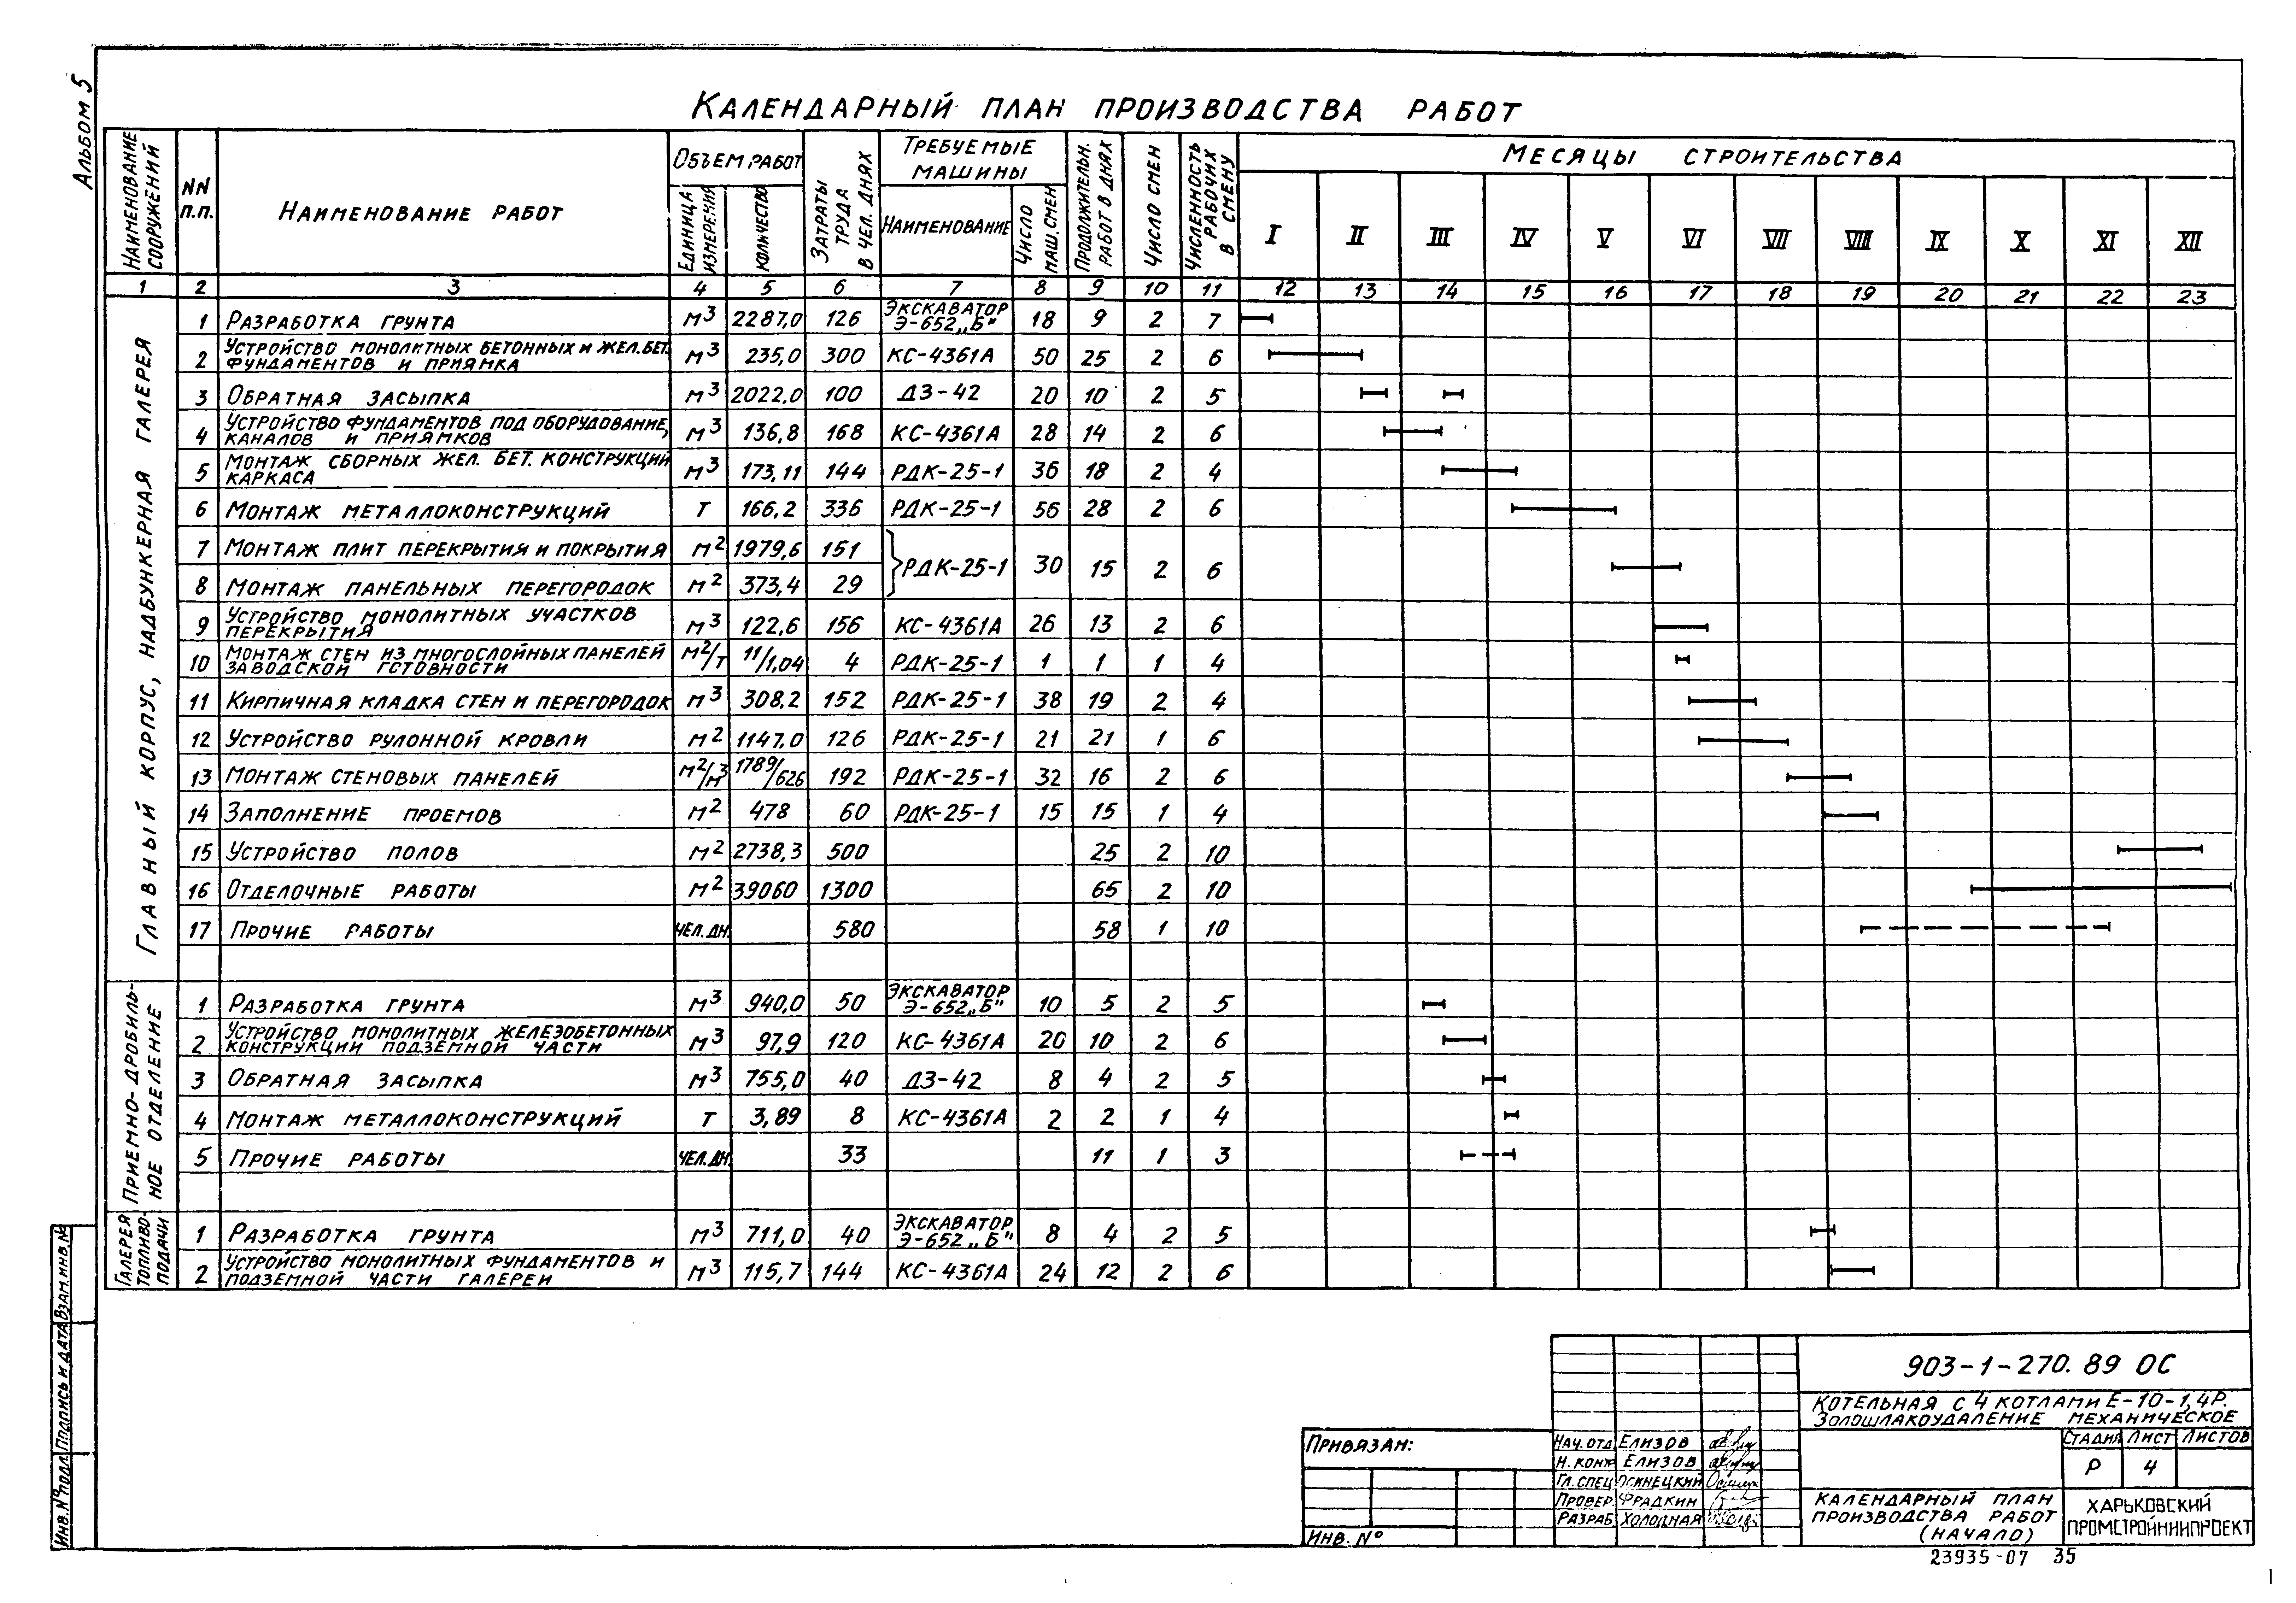 Альбом 5
Календарный план производства работ
Наименование сооружений
NN п.п.
Наименование работ
Объем работ
Единица измерения
Количество
Затраты труда в чел. днях
Требуемые машины
Наименование
Число маш. смен
Продолжительн. работ в днях
Число смен
Численность рабочих в смену
Месяцы строительства
I II III IV V VI VII VIII IX X XI XII
1 2 3 4 5 6 7 8 9 10 11 12 13 14 15 16 17 18 19 20 21 22 23
Главный корпус, надбункерная галерея
1 Разработка грунта м3 2287,0 126 Экскаватор Э-652 „Б" 18 9 2 7
2 Устройство монолитных бетонных и жел.бет. фундаментов и приямка м3 235,0 300 КС-4361А 50 25 2 6
3 Обратная засыпка м3 2022,0 100 ДЗ-42 20 10 2 5
4 Устройство фундаментов под оборудование, каналов и приямков м3 136,8 168 КС-4361А 28 14 2 6
5 Монтаж сборных жел. бет. конструкций каркаса м3 173,11 144 РДК-25-1 36 18 2 4
6 Монтаж металлоконструкций т 166,2 336 РДК-25-1 56 28 2 6
7 Монтаж плит перекрытия и покрытия м2 1979,6 151
РДК-25-1 30 15 2 6
8 Монтаж панельных перегородок м2 373,4 29
9 Устройство монолитных участков перекрытия м3 122,6 156 КС-4361А 26 13 2 6
10 Монтаж стен из многослойных панелей заводской готовности м2/т 11/1,04 4 РДК-25-1 1 1 1 4
11 Кирпичная кладка стен и перегородок м3 308,2 152 РДК-25-1 38 19 2 4
12 Устройство рулонной кровли м2 1147,0 126 РДК-25-1 21 21 1 6
13 Монтаж стеновых панелей м2/м3 1789/626 192 РДК-25-1 32 16 2 6
14 Заполнение проемов м2 478 60 РДК-25-1 15 15 1 4
15 Устройство полов м2 2738,3 500 25 2 10
16 Отделочные работы м2 39060 1300 65 2 10
17 Прочие работы чел.дн. 580 58 1 10
Приемно-дробильное отделение
1 Разработка грунта м3 940,0 50 Экскаватор Э-652 „Б" 10 5 2 5
2 Устройство монолитных железобетонных конструкции подземной части м3 97,9 120 КС-4361А 20 10 2 6
3 Обратная засыпка м3 755,0 40 ДЗ-42 8 4 2 5
4 Монтаж металлоконструкций т 3,89 8 КС-4361А 2 2 1 4
5 Прочие работы чел.дн. 33 11 1 3
Галерея топливоподачи
1 Разработка грунта м3 711,0 40 Экскаватор Э-652 „Б" 8 4 2 5
2 Устройство монолитных фундаментов и подземной части галереи м3 115,7 144 КС-4361А 24 12 2 6
Взам.инв.№
Подпись и дата
Инв.№ подл.
903-1-270.89 ОС
Котельная с 4 котлами Е-10-1,4Р.
Золошлакоудаление механическое
Привязан:
Инв. №
Нач.отд. Елизов
Н.конт Елизов
Гл.спец Осинецкий
Провер. Фрадкин
Разраб. Холодная
Стадия Лист Листов
Р 4
Календарный план
производства работ
(начало)
Харьковский
Промстройниипроект
23935-07 35